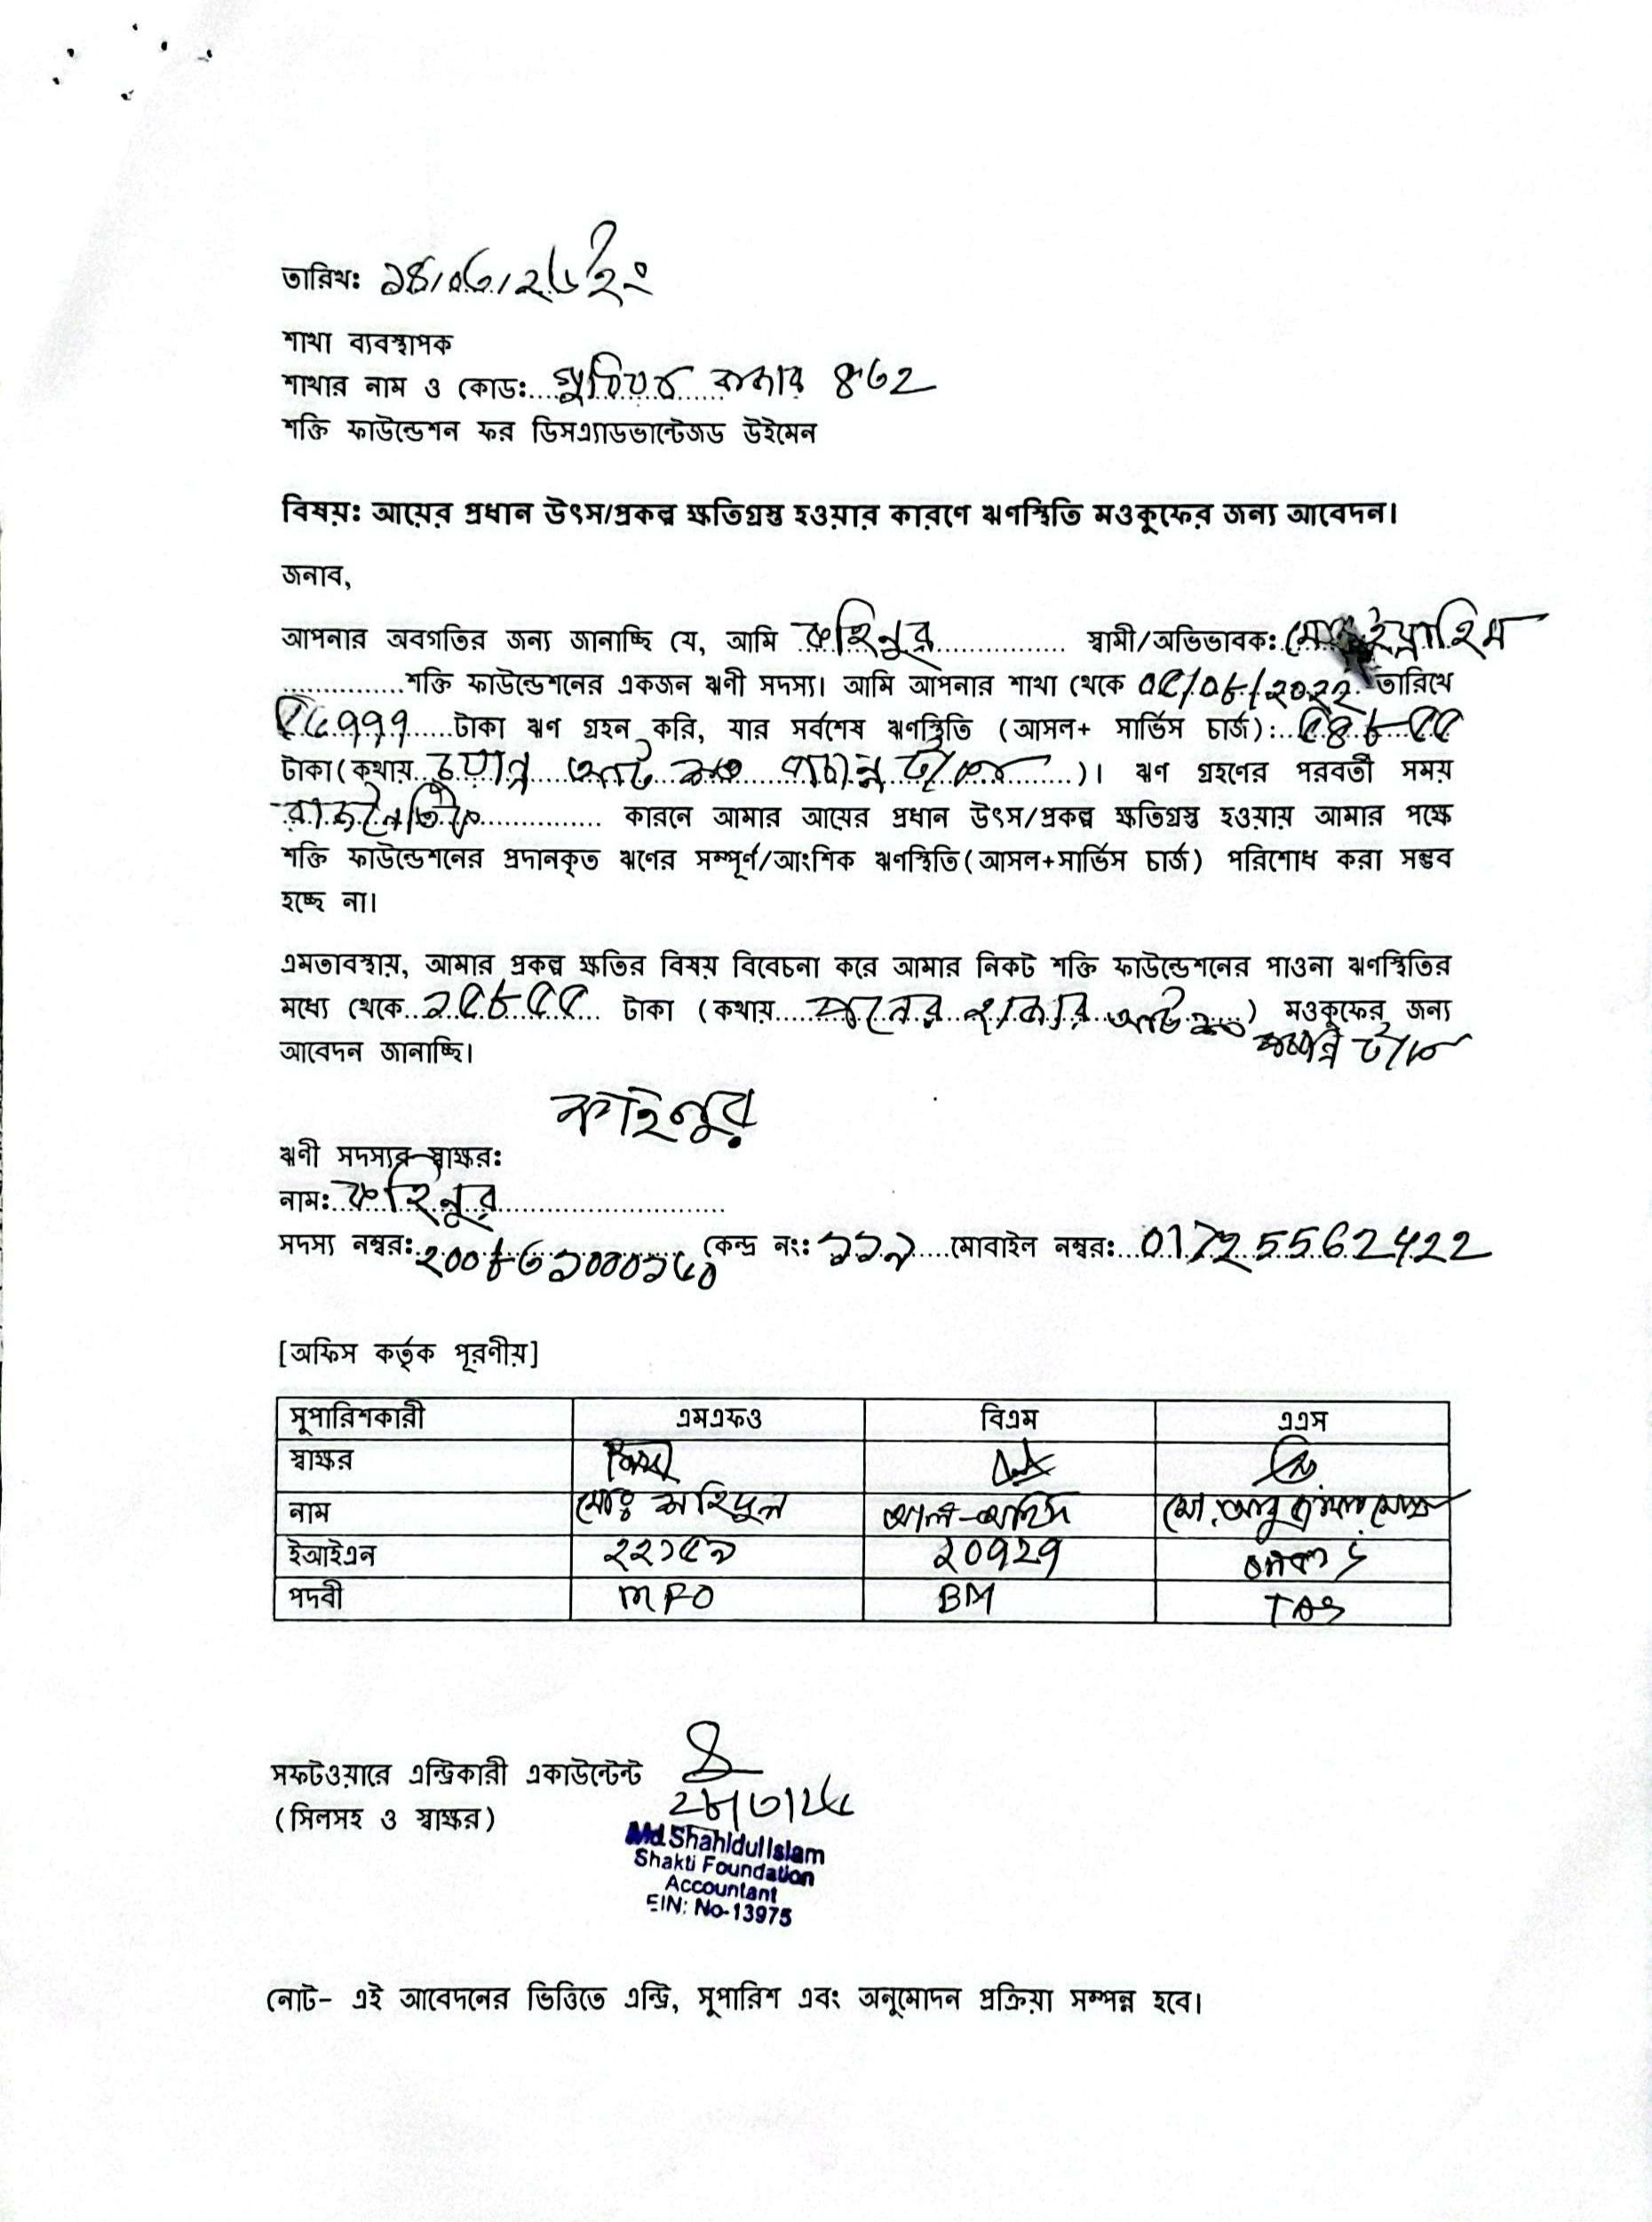 তারিখ: ১৪/০৩/২৬ইং
শাখা ব্যবস্থাপক
শাখার নাম ও কোড:.... বাজার ৪৬২
শক্তি ফাউন্ডেশন ফর ডিসএ্যাডভান্টেজড উইমেন
বিষয়: আয়ের প্রধান উৎস/প্রকল্প ক্ষতিগ্রস্ত হওয়ার কারণে ঋণস্থিতি মওকুফের জন্য আবেদন।
জনাব,
আপনার অবগতির জন্য জানাচ্ছি যে, আমি কহিনুর স্বামী/অভিভাবক: ইব্রাহিম
শক্তি ফাউন্ডেশনের একজন ঋণী সদস্য। আমি আপনার শাখা থেকে তারিখে
টাকা ঋণ গ্রহন করি, যার সর্বশেষ ঋণস্থিতি (আসল+ সার্ভিস চার্জ): ৫৪৮৫৫
টাকা(কথায় চুয়ান্ন আট শত পচান্ন টাকা)। ঋণ গ্রহণের পরবর্তী সময়
রাজনৈতিক কারনে আমার আয়ের প্রধান উৎস/প্রকল্প ক্ষতিগ্রস্ত হওয়ায় আমার পক্ষে
শক্তি ফাউন্ডেশনের প্রদানকৃত ঋণের সম্পূর্ণ/আংশিক ঋণস্থিতি(আসল+সার্ভিস চার্জ) পরিশোধ করা সম্ভব
হচ্ছে না।
এমতাবস্থায়, আমার প্রকল্প ক্ষতির বিষয় বিবেচনা করে আমার নিকট শক্তি ফাউন্ডেশনের পাওনা ঋণস্থিতির
মধ্যে থেকে ১৫৮৫৫ টাকা (কথায় পনের হাজার আটশত) মওকুফের জন্য
পচান্ন টাকা
আবেদন জানাচ্ছি।
কহিনুর
ঋণী সদস্যর স্বাক্ষর:
নাম: কহিনুর
সদস্য নম্বর: কেন্দ্র নং: ১১৯ মোবাইল নম্বর: 01725562422
[অফিস কর্তৃক পূরণীয়]
সুপারিশকারী এমএফও বিএম এএস
স্বাক্ষর
নাম মোঃ
ইআইএন ২২১৫৯ ২০৭২৭
পদবী MFO BM TAS
সফটওয়ারে এন্ট্রিকারী একাউন্টেন্ট
(সিলসহ ও স্বাক্ষর)
Md. Shahidul Islam
Shakti Foundation
Accountant
EIN: No-13975
নোট- এই আবেদনের ভিত্তিতে এন্ট্রি, সুপারিশ এবং অনুমোদন প্রক্রিয়া সম্পন্ন হবে।